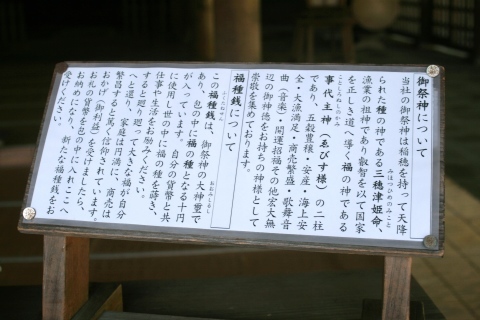 御祭神について
当社の御祭神は福穂を持って天降
られた種の神である三穂津姫命、
みほつひめのみこと
漁業の祖神であり叡智を以て国家
を正しき道へ導く福の神である
ことしろぬしのかみ
事代主神(ゑびす様)の二柱
であり、五穀豊穣・安産・海上安
全・大漁満足・商売繁盛・歌舞音
曲(音楽)・開運招福その他宏大無
辺の御神徳をお持ちの神様として
崇敬を集めております。
福種銭について
ふくたねせん
この福種銭は、御祭神の大神璽で
おおみしるし
あり、包の中に福の種となる十円
が入っています。自分の貨幣と共
に使用し世の中に福の種を蒔き、
仕事や生活をお励みください。
すると廻り廻って大きな福が自分
へと還り、家庭は円満に、商売は
繁昌すると篤く信仰されています。
おかげ(御利益)を受けましたら、
お礼の貨幣を包の中に入れここへ
お納めになり、新たな福種銭をお
受けください。